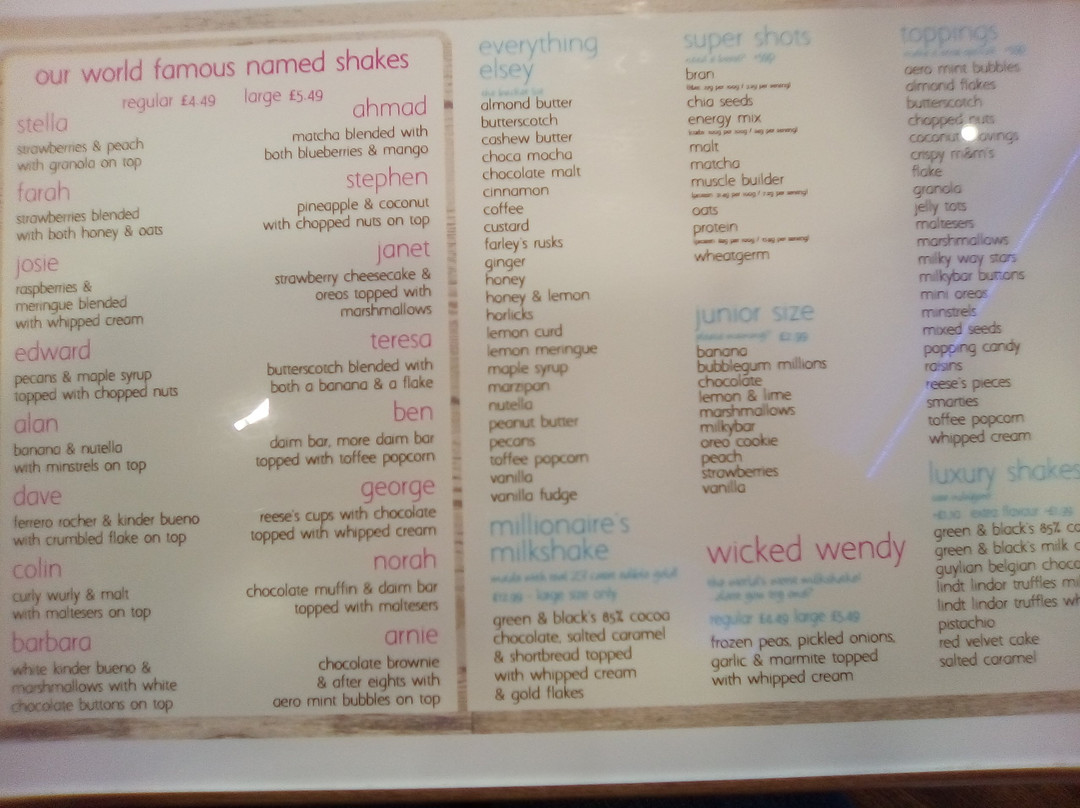 our world famous named shakes
regular £4.49 large £5.49
stella
strawberries & peach
with granola on top
farah
strawberries blended
with both honey & oats
josie
raspberries &
meringue blended
with whipped cream
edward
pecans & maple syrup
topped with chopped nuts
alan
banana & nutella
with minstrels on top
dave
ferrero rocher & kinder bueno
with crumbled flake on top
colin
curly wurly & malt
with maltesers on top
barbara
white kinder bueno &
marshmallows with white
chocolate buttons on top
ahmad
matcha blended with
both blueberries & mango
stephen
pineapple & coconut
with chopped nuts on top
janet
strawberry cheesecake &
oreos topped with
marshmallows
teresa
butterscotch blended with
both a banana & a flake
ben
daim bar, more daim bar
topped with toffee popcorn
george
reese's cups with chocolate
topped with whipped cream
norah
chocolate muffin & daim bar
topped with maltesers
arnie
chocolate brownie
& after eights with
aero mint bubbles on top
everything
elsey
almond butter
butterscotch
cashew butter
choca mocha
chocolate malt
cinnamon
coffee
custard
farley's rusks
ginger
honey
honey & lemon
horlicks
lemon curd
lemon meringue
maple syrup
marzipan
nutella
peanut butter
pecans
toffee popcorn
vanilla
vanilla fudge
millionaire's
milkshake
large size only
green & black's 85% cocoa
chocolate, salted caramel
& shortbread topped
with whipped cream
& gold flakes
super shots
bran
chia seeds
energy mix
malt
matcha
muscle builder
oats
protein
wheatgerm
junior size
banana
bubblegum millions
chocolate
lemon & lime
marshmallows
milkybar
oreo cookie
peach
strawberries
vanilla
wicked wendy
the world's worst milkshake!
regular £4.49 large £5.49
frozen peas, pickled onions,
garlic & marmite topped
with whipped cream
toppings
aero mint bubbles
almond flakes
butterscotch
chopped nuts
coconut
crispy m&m's
flake
granola
jelly tots
maltesers
marshmallows
milky way stars
milkybar buttons
mini oreos
minstrels
mixed seeds
popping candy
raisins
reese's pieces
smarties
toffee popcorn
whipped cream
luxury shakes
green & black's 85%
green & black's milk
guylian belgian
lindt lindor truffles
lindt lindor truffles
pistachio
red velvet cake
salted caramel